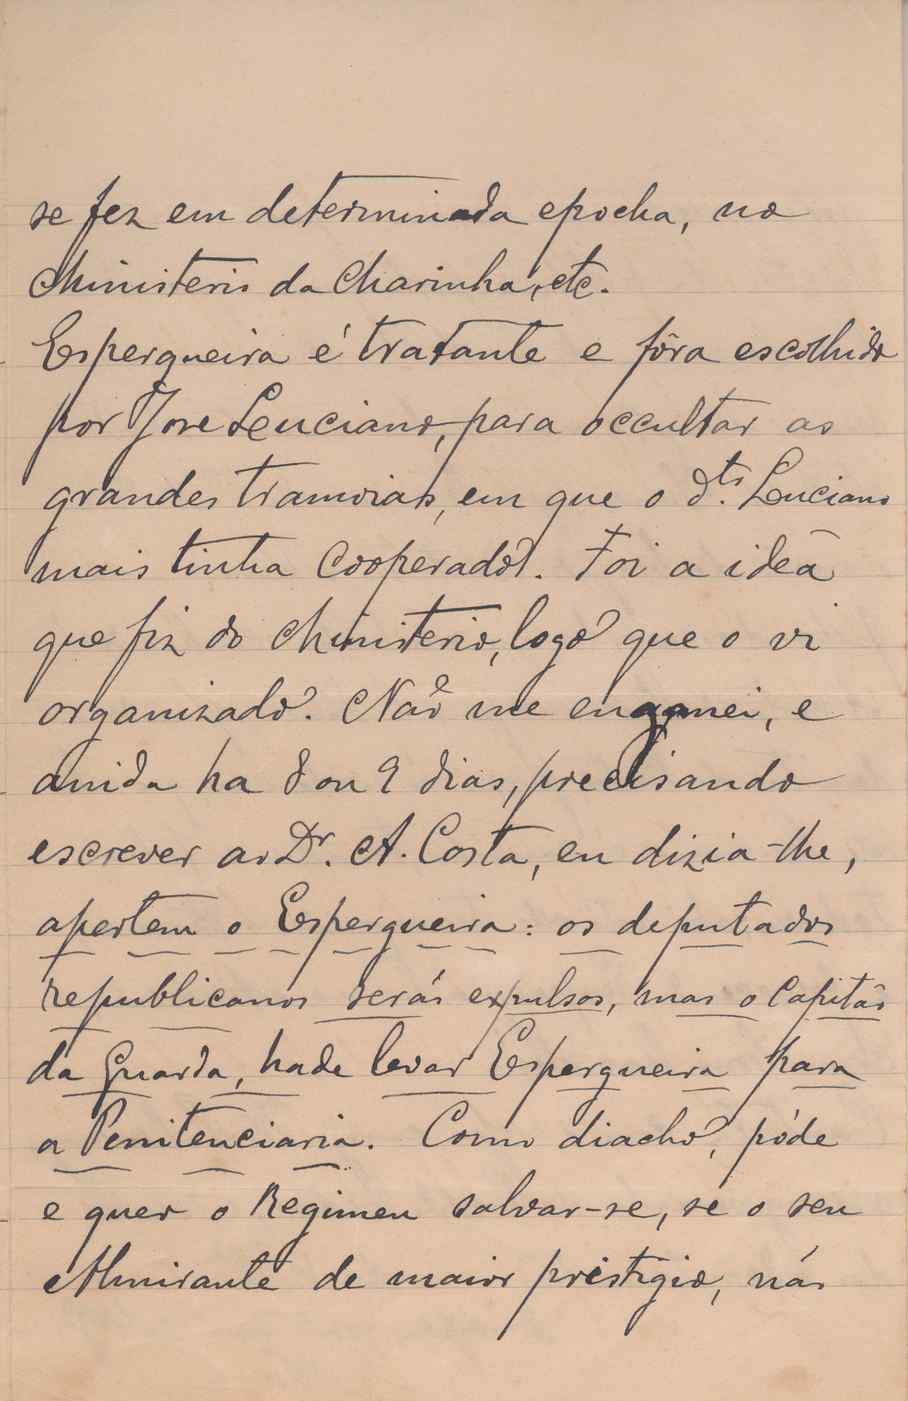 se fez em determinada epocha, no
Ministerio da Marinha, etc.
Espergueira é tratante e fôra escolhido
por José Luciano, para occultar as
grandes tramoias, em que o dto. Luciano
mais tinha cooperado. Foi a idéa
que fiz do Ministerio, logo que o vi
organizado. Não me enganei, e
ainda ha 8 ou 9 dias, precisando
escrever ao Dr. A. Costa, eu dizia-lhe,
apertem o Espergueira: os deputados
republicanos serás expulsos, mas o Capitão
da Guarda, hade levar Espergueira para
a Penitenciaria. Como diacho, póde
e quer o Regimen salvar-se, se o seu
Almirante de maior prestigio, nás